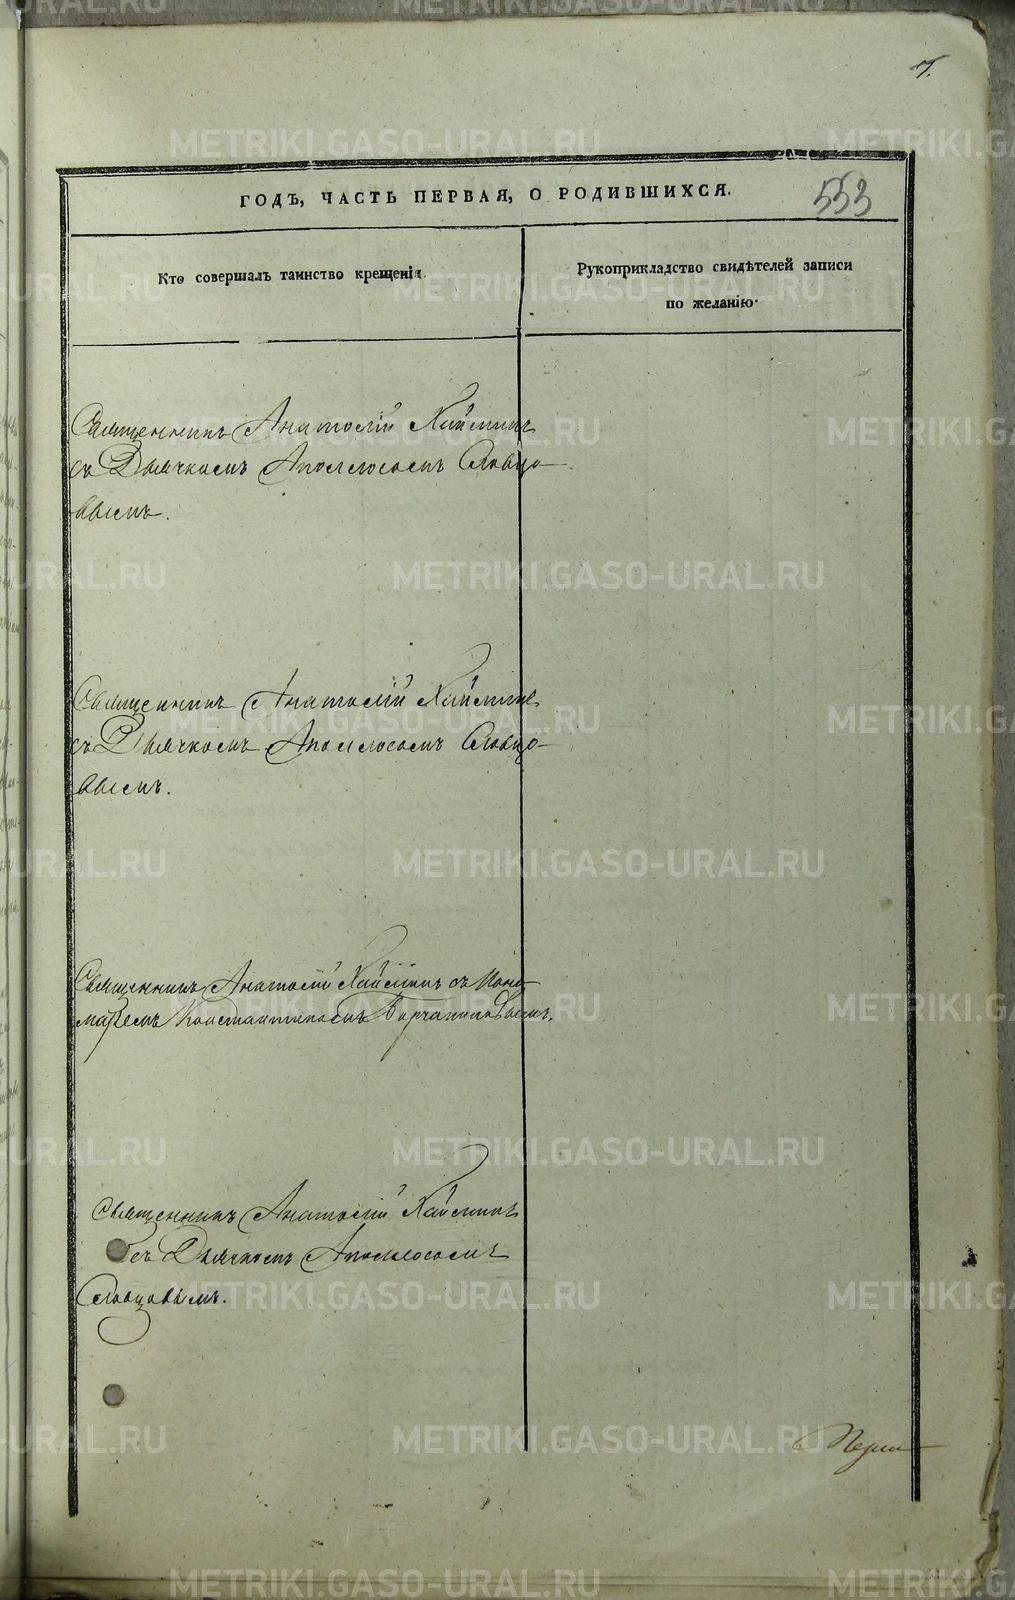 7.
553
ГОДЪ, ЧАСТЬ ПЕРВАЯ, О РОДИВШИХСЯ.
Кто совершалъ таинство крещенія.
Рукоприкладство свидѣтелей записи
по желанію.
Священникъ Анатолій
съ Дьячкомъ Аполлосомъ Словцо-
вымъ.
Священникъ Анатолій
съ Дьячкомъ Аполлосомъ Словцо-
вымъ.
Священникъ Анатолій съ Поно-
маремъ Константиномъ
Священникъ Анатолій
съ Дьячкомъ Аполлосомъ
Словцовымъ.
METRIKI.GASO-URAL.RU